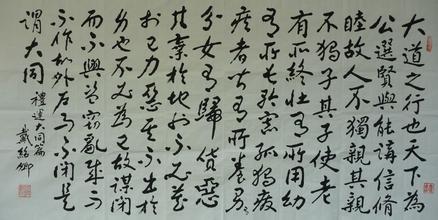 大道之行也天下為
公選賢與能講信脩
睦故人不獨親其親
不獨子其子使老
有所終壯有所用幼
有所長矜寡孤獨廢
疾者皆有所養男有
分女有歸貨惡
其棄於地也不必藏
於己力惡其不出於
身也不必為己故謀閉
而不興盜竊亂賊而
不作故外戶而不閉是
謂大同
禮運大同篇